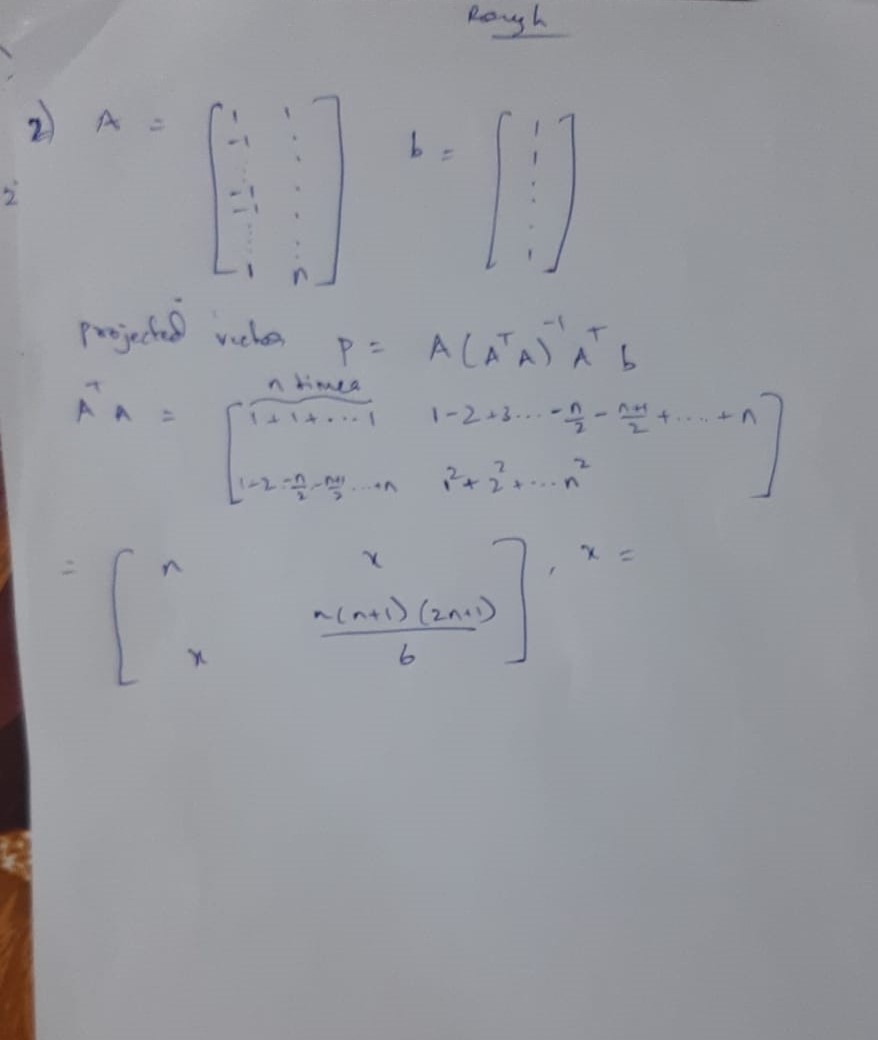 Rough
2) A = [ 1 1 ; -1 . ; . . ; -1 . ; -1 . ; . . ; 1 n ] b = [ 1 ; 1 ; . ; . ; . ; 1 ]
2
projected vector p = A(AᵀA)⁻¹Aᵀb
n times
AᵀA = [ 1+1+...1 1-2+3...-n/2 - n+1/2 +....+n
1-2-n/2-n+1/2...+n 1²+2²+...n² ]
= [ n x ; x n(n+1)(2n+1)/6 ] , x =